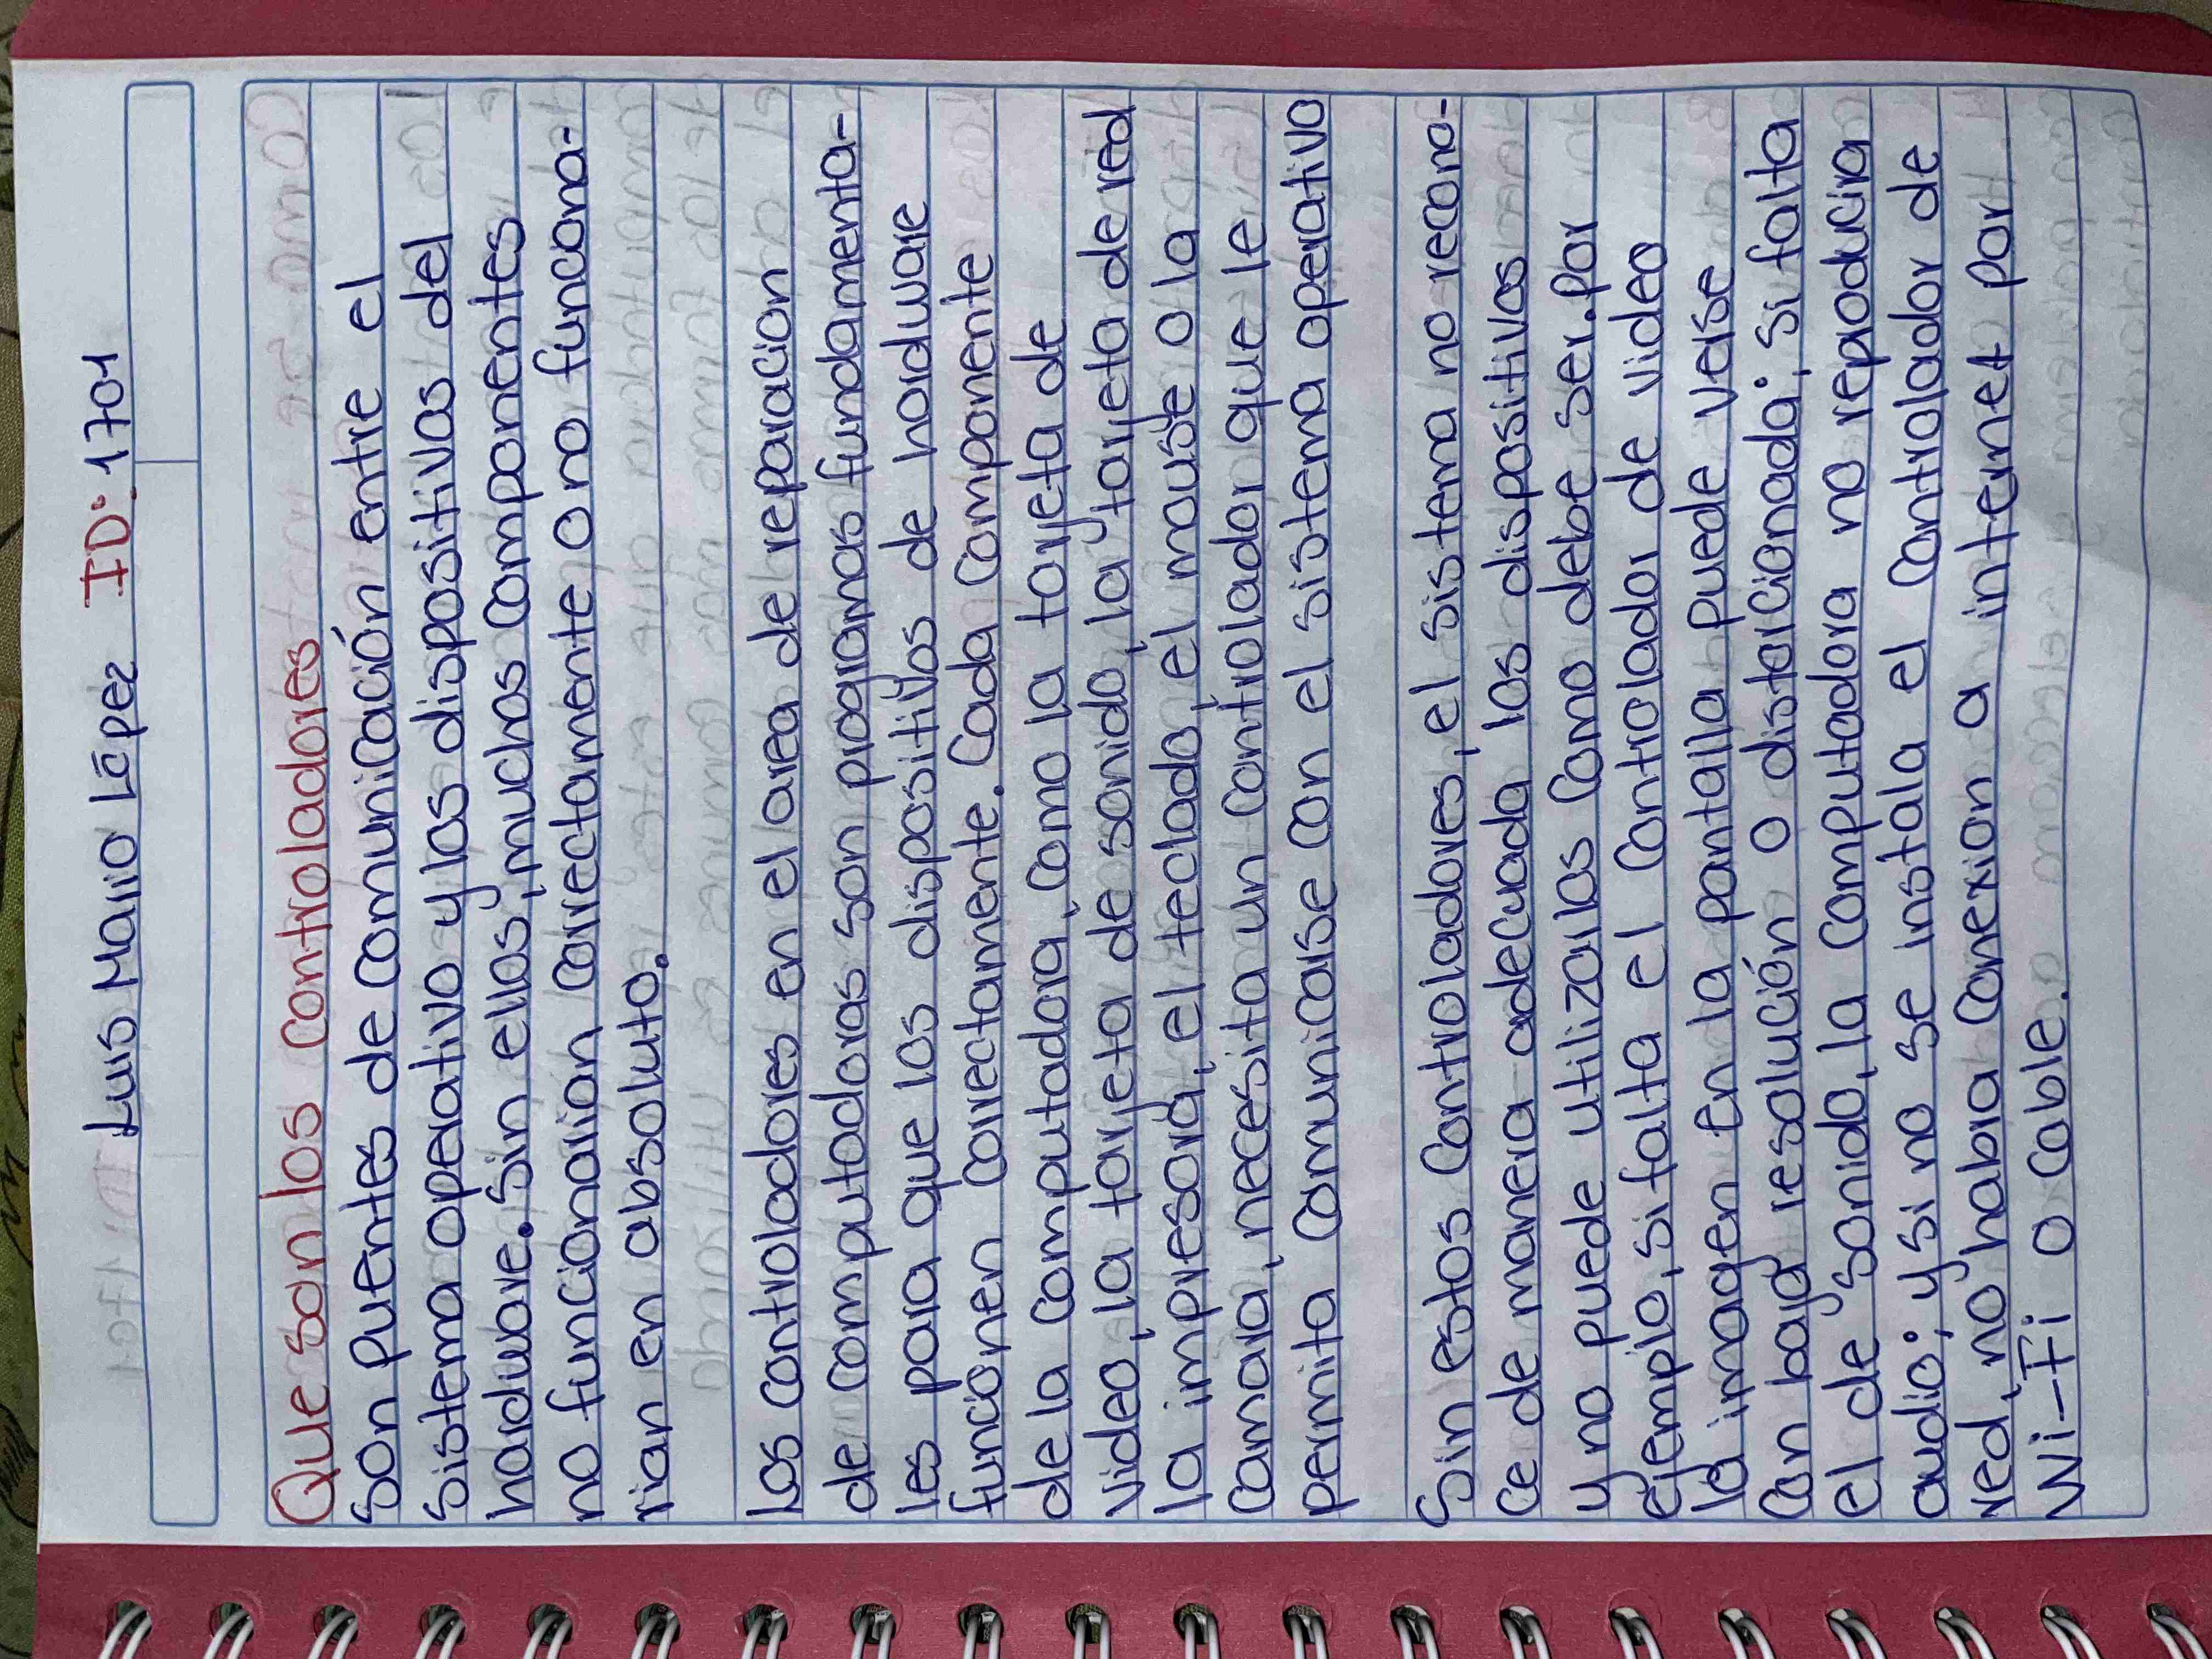 Luis Mario López ID: 1701
Que son los controladores
son puentes de comunicación entre el
sistema operativo y los dispositivos del
hardware. Sin ellos, muchos componentes
no funcionarian correctamente o no funcona-
rian en absoluto.
Los controladores en el area de reparacion
de computadoras son programas fundamenta-
les para que los dispositivos de hardware
funcionen correctamente. Cada componente
de la computadora, como la tarjeta de
video, la tarjeta de sonido, la tarjeta de red
la impresora, el teclado, el mouse o la
camara, necesita un controlador que le
permita comunicarse con el sistema operativo
Sin estos controladores, el sistema no recono-
ce de manera adecuada los dispositivos
y no puede utilizarlos como debe ser. por
ejemplo, si falta el controlador de video
la imagen en la pantalla puede verse
con baja resolución o distorcionada; si falta
el de sonido, la computadora no reproducira
audio; y si no se instala el controlador de
red, no habra conexion a internet por
Wi-Fi o cable.